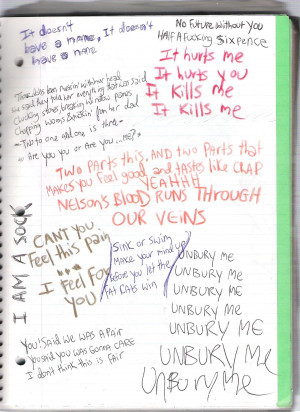 It doesn't
have a name, It doesn't
have a name
No Future Without You
HALF A Fucking Sixpence
It hurts me
It hurts you
It kills me
It kills me
her head
she said they told her everything that was said
Chucking stones breaking window panes
Chopping wood for her dad
Two to one and one is three
or Are you you or Are you... me?
Two Parts this, AND two Parts that
Makes you Feel good and tastes like CRAP
YEAHHH
Nelson's Blood RUNS THROUGH
OUR VEINS
I AM A SOCK
CANT YOU
Feel this pain
I Feel For
you
Sink or Swim
Make your mind up
Before you let the
FAT CATS win
UNBURY ME
UNBURY ME
UNBURY ME
UNBURY ME
UNBURY ME
UNBURY ME
UnBury Me
You! Said we was A Pair
You said you was GONNA CARE
I don't think this is fair